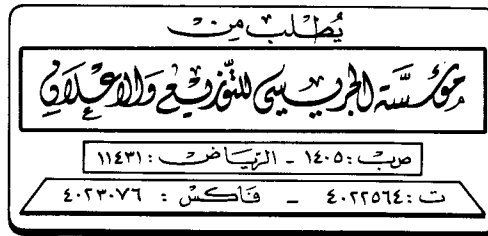 يُطلب من
مؤسسة الجريسي للتوزيع والإعلان
ص.ب : ١٤٠٥ - الرياض : ١١٤٣١
ت : ٤٠٢٢٥٦٤ - فاكس : ٤٠٢٣٠٧٦